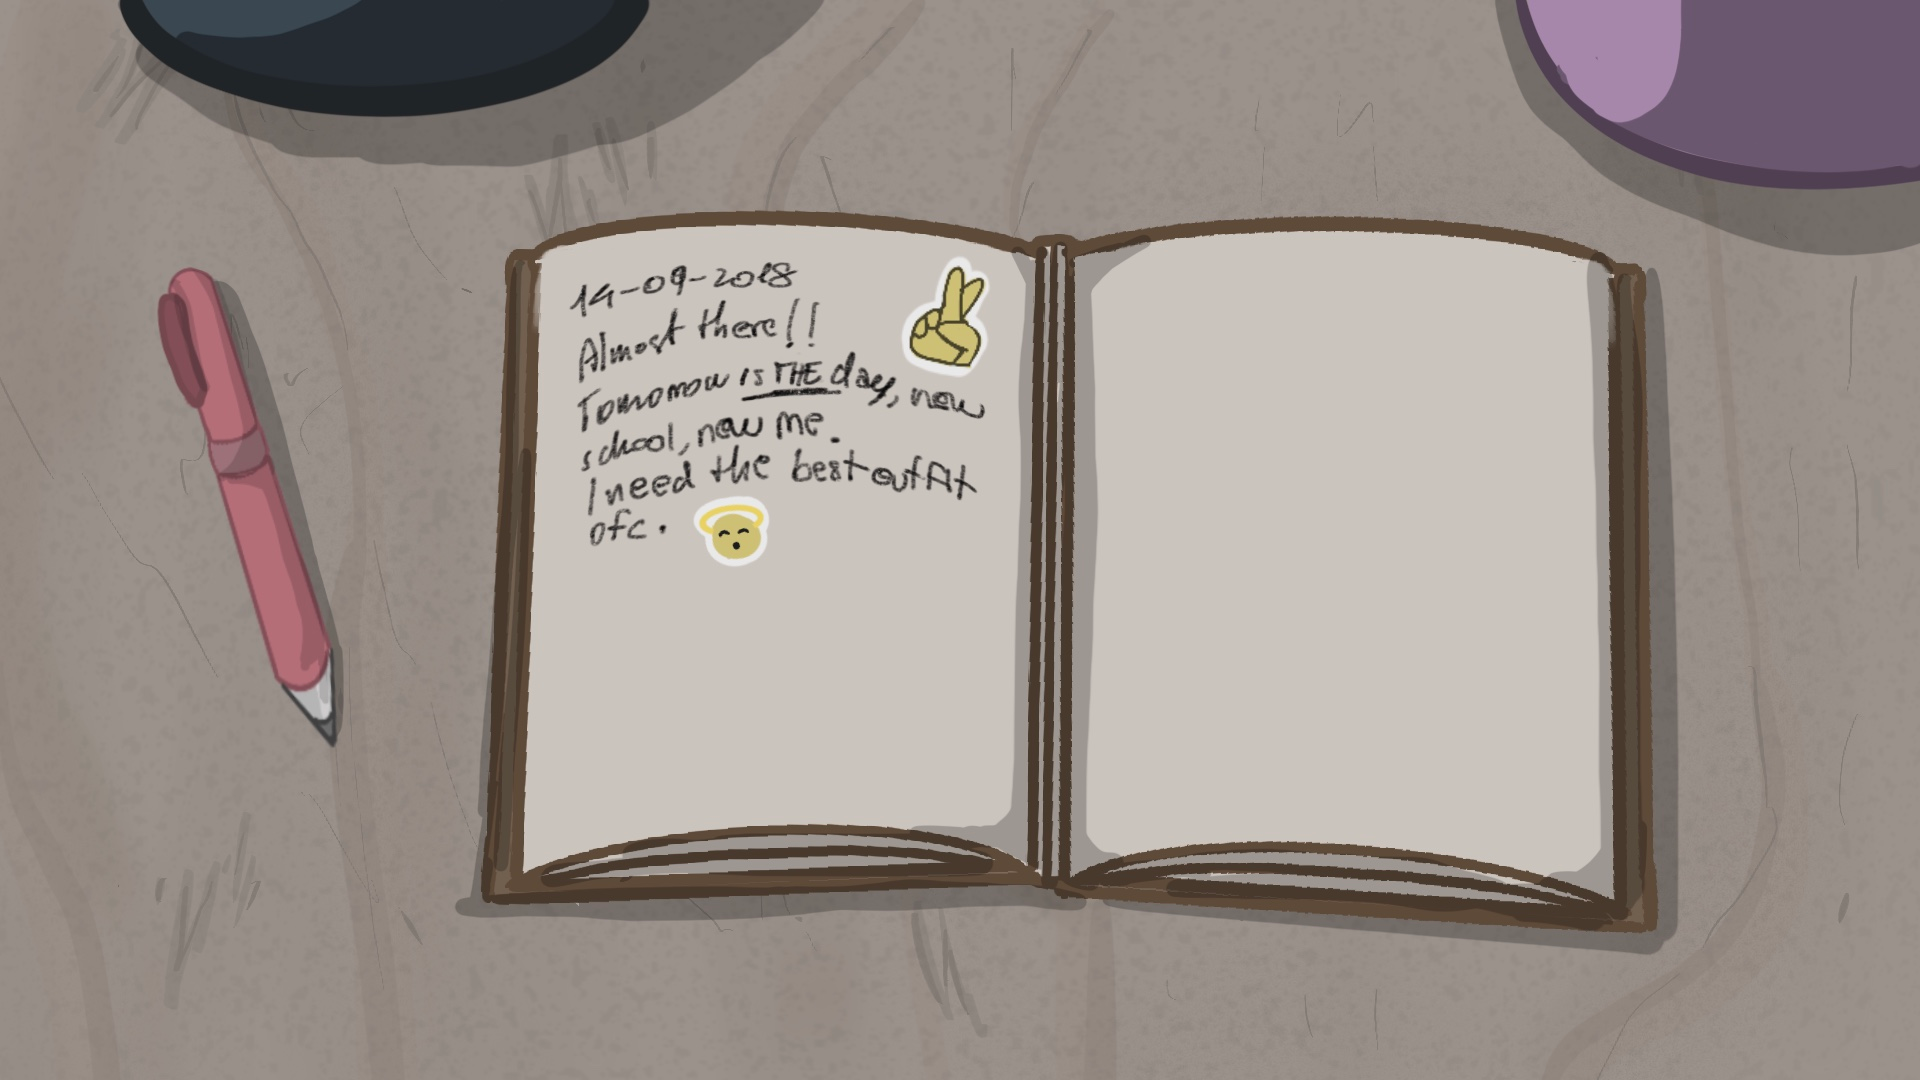 14-09-2018
Almost there!!
Tomorrow is THE day, new
school, new me.
I need the best outfit
ofc.